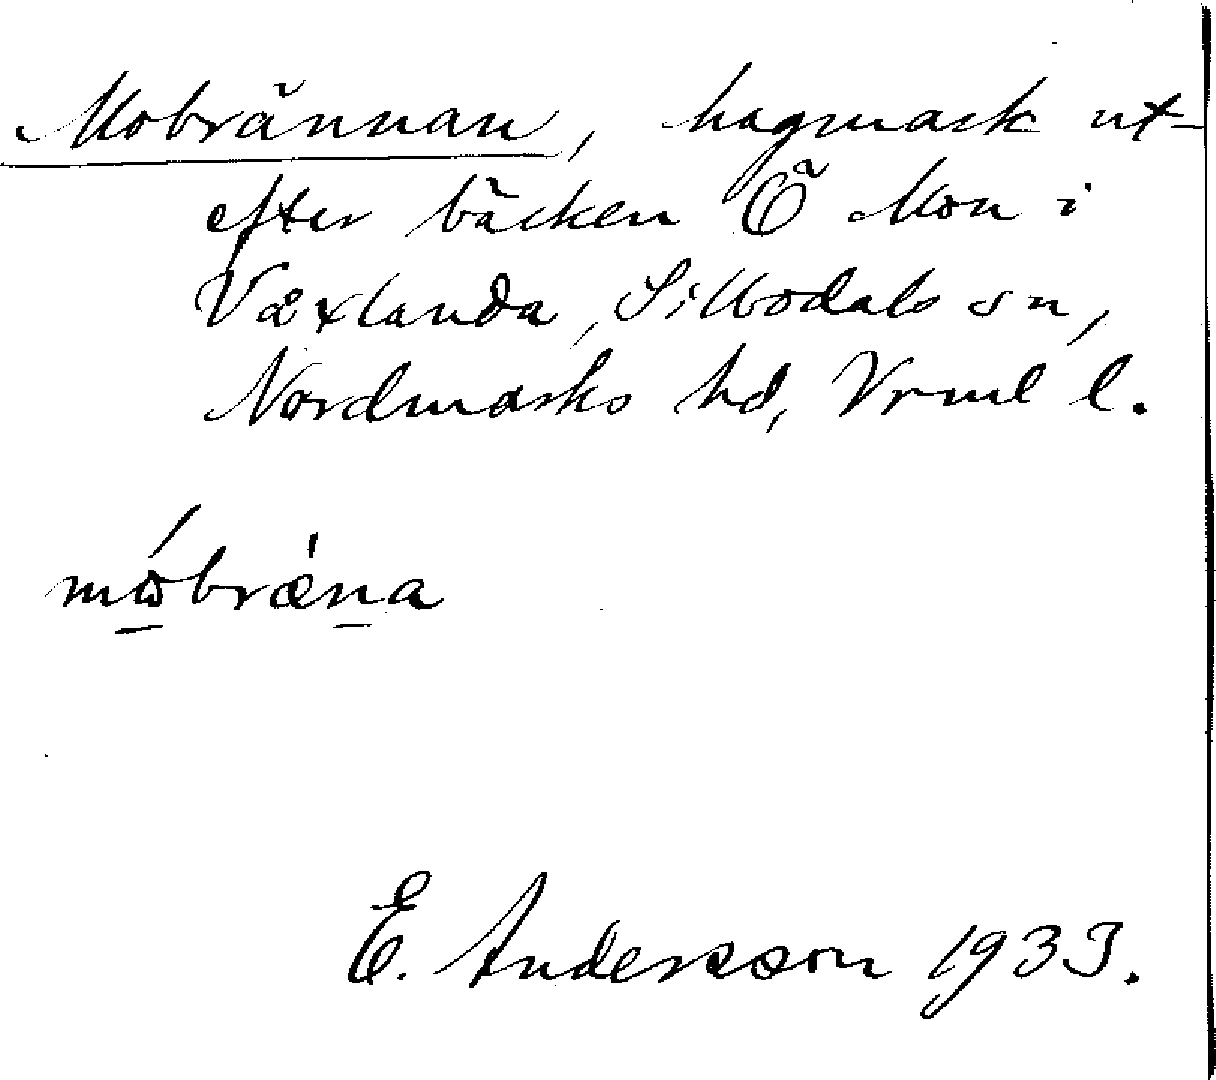 Mobrännan, hagmark ut-
efter bäcken Ö Mon i
Växlanda, Silbodals sn,
Nordmarks hd, Vrml l.
mɷ́bræ̀na
E. Andersson 1933.